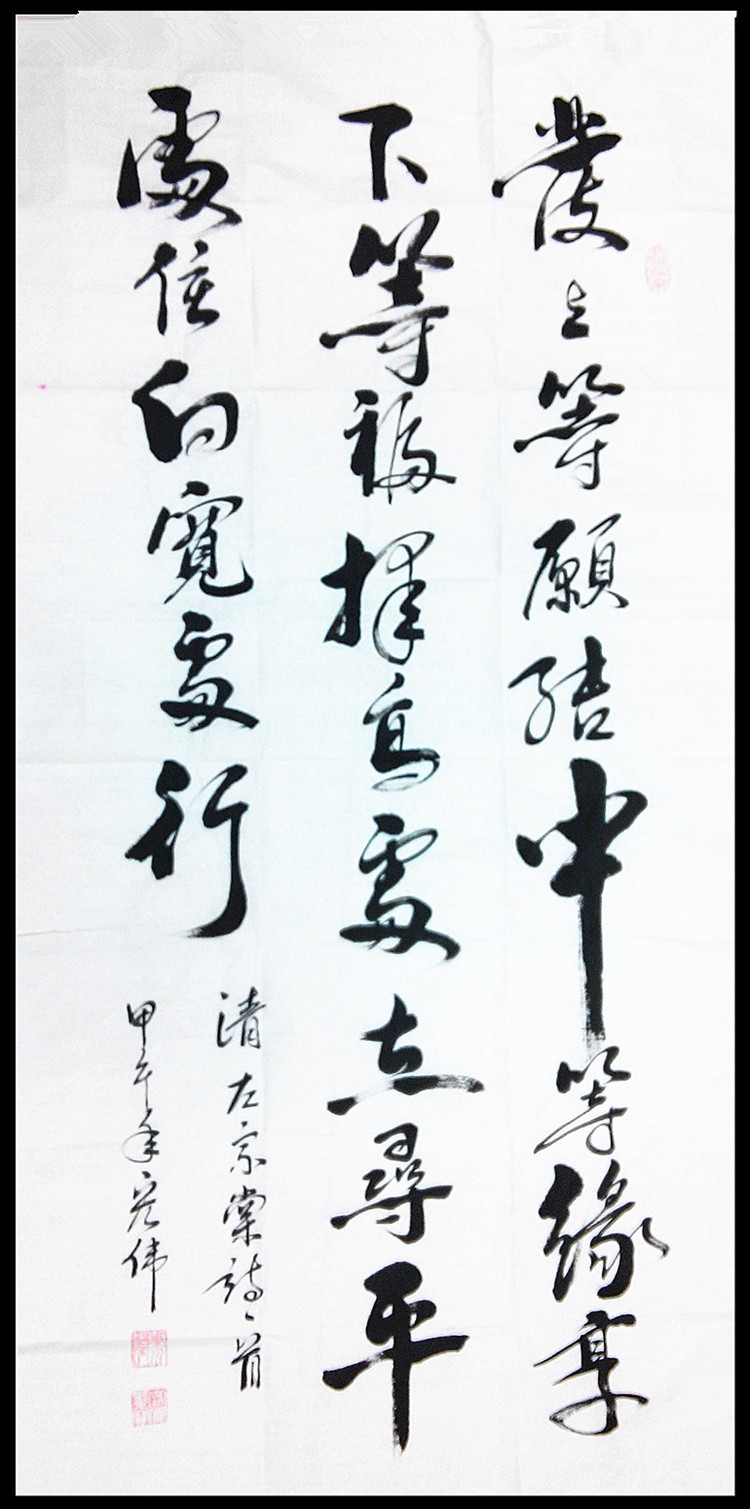 發上等願結中等緣享
下等福擇高處立尋平
處住向寬處行
清左宗棠詩一首
甲午年宏伟